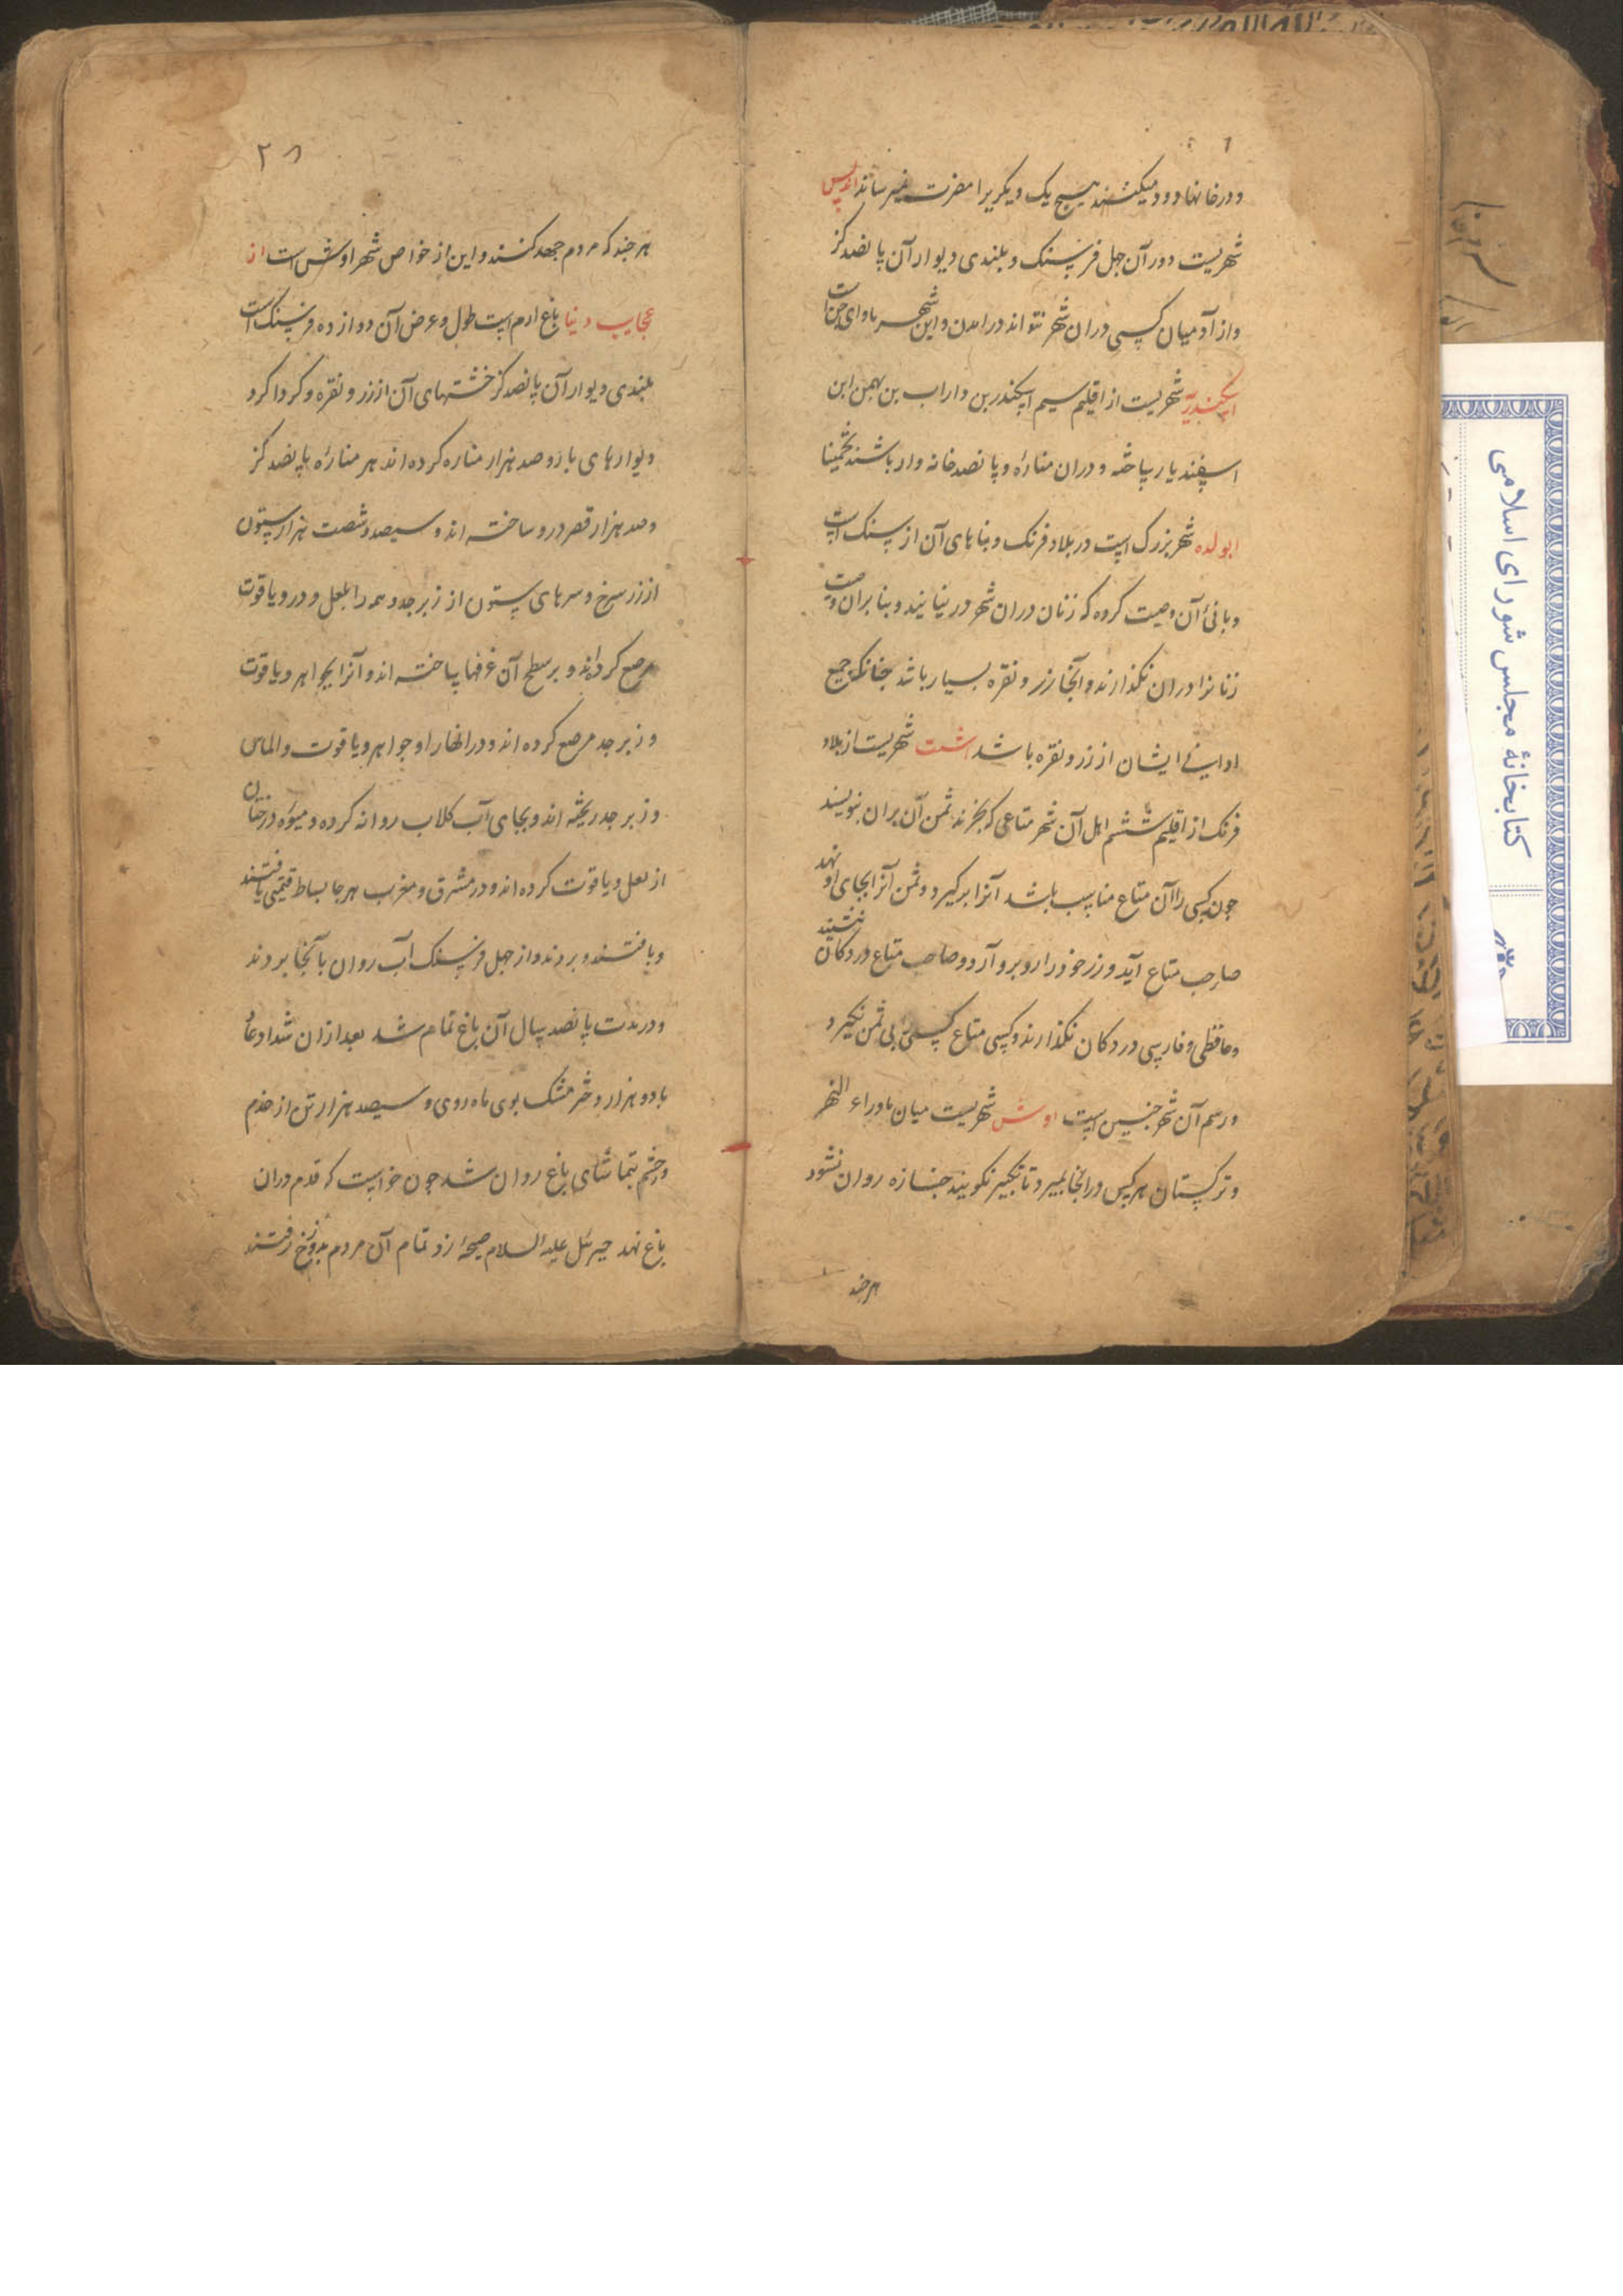 و درخانها دود میکنند هیچ یک دیگریرا مضرت نمیرساند اندلس
شهریست دور آن چهل فرسنک و بلندی دیوار آن پانصد کز
و از آدمیان کسی دران شهر نتواند درامدن و این شهر ماوای جن است
اسکندریه شهریست از اقلیم سیم اسکندر بن داراب بن بهمن ابن
اسفندیار ساخته و دران مناره و پانصد خانه وار باشند تخمینا
ابولده شهر بزرک است در بلاد فرنک و بناهای آن از سنک است
و بانئ آن وصیت کرده که زنان دران شهر در نیایند و بنا بران وصیت
زنانرا دران نکذارند و آنجا زر و نقره بسیار باشد چنانکه جمیع
اوانی ایشان از زر و نقره باشد اشت شهریست از بلاد
فرنک از اقلیم ششم اهل آن شهر متاعی که بخرند ثمن آن بران بنویسند
چون کسی را آن متاع مناسب باشد آنرا برکیرد و ثمن آنرا بجای او نهد
صاحب متاع آید و زر خود را رو برو آرد و صاحب متاع در دکان ننشیند
و حافظی و فارسی در دکان نکذارند و کسی متاع کسی بی ثمن نکیرد
و رسم آن شهر چنین است اوش شهریست میان ماوراء النهر
و ترکستان هر کس در انجا بمیرد تا تکبیر نکویند جنازه روان نشود
هر چند
۲۸
هر چند که مردم جهد کنند و این از خواص شهر اوش است از
عجایب دنیا باغ ارم است طول و عرض آن دوازده فرسنک است
بلندی دیوار آن پانصد کز خشتهای آن از زر و نقره و کردا کرد
دیوارهای باره صد هزار مناره کرده اند هر مناره پانصد کز
و صد هزار قصر درو ساخته اند و سیصد و شصت هزار ستون
از زر سرخ و سرهای ستون از زبرجد و همه را بلعل و در و یاقوت
مرصع کرده اند و بر سطح آن غرفها ساخته اند و آنرا بجواهر و یاقوت
و زبرجد مرصع کرده اند و در انهار او جواهر و یاقوت و الماس
و زبرجد ریخته اند و بجای آب کلاب روانه کرده و میوه درختان
از لعل و یاقوت کرده اند و در مشرق و مغرب هر جا بساط قیمتی یافتند
و بافتند و بردند و از چهل فرسنک آب روان بآنجا بردند
و در مدت پانصد سال آن باغ تمام شد بعد ازان شداد عاد
با دو هزار دختر مشک بوی ماه روی و سیصد هزار تن از خدم
و حشم بتماشای باغ روان شد چون خواست که قدم دران
باغ نهد جبرئل علیه السلام صیحهٔ زد تمام آن مردم بدوزخ رفتند
کتابخانهٔ مجلس شورای اسلامی